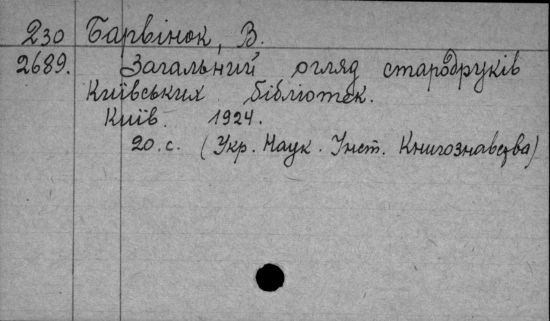 230 Барвінок, В.
2689. Загальний огляд стародруків
Київських бібліотек.
Київ. 1924.
20.с. (Укр. Наук. Інст. Книгознавства)